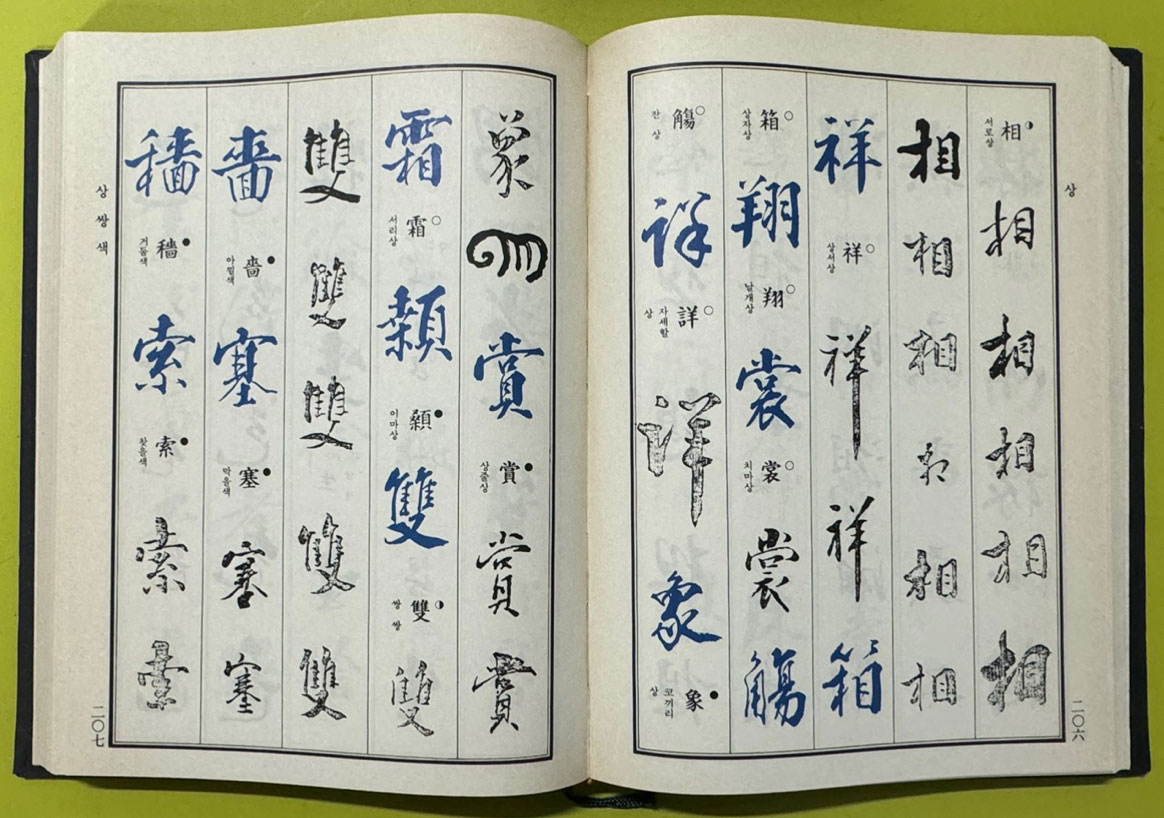 상
二〇六
相 서로상 相 相 相 相 相
相 相 相 相 相 相
祥 祥 상서상 祥 祥 箱
箱 상자상 翔 翔 날개상 裳 裳 치마상 裳 觴
觴 잔상 詳 詳 자세할상 詳 象 象 코끼리상
象 象 賞 賞 상줄상 賞 賞
霜 霜 서리상 顙 顙 이마상 雙 雙 쌍쌍 雙
雙 雙 雙 雙 雙
嗇 嗇 아낄색 塞 塞 막을색 塞 塞
穡 穡 거둘색 索 索 찾을색 索 索
상 쌍 색
二〇七